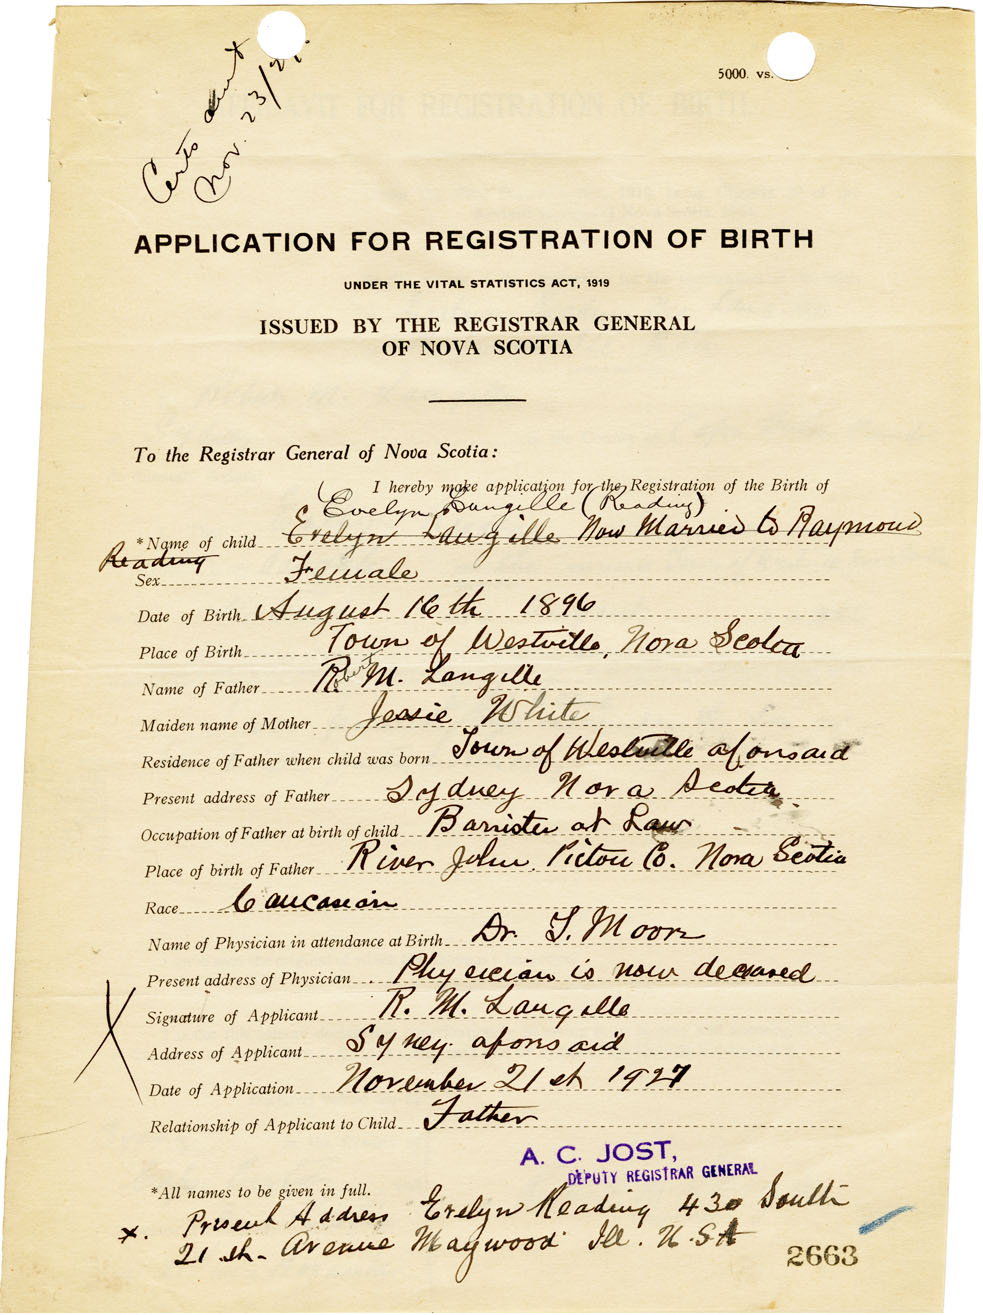 Certs sent
Nov. 23/27.
5000. vs.
APPLICATION FOR REGISTRATION OF BIRTH
UNDER THE VITAL STATISTICS ACT, 1919
ISSUED BY THE REGISTRAR GENERAL
OF NOVA SCOTIA
To the Registrar General of Nova Scotia:
I hereby make application for the Registration of the Birth of
Evelyn Langille (Reading)
*Name of child Evelyn Langille Now Married to Raymond
Reading
Sex Female
Date of Birth August 16th 1896
Place of Birth Town of Westville, Nova Scotia
Name of Father Robert M. Langille
Maiden name of Mother Jessie White
Residence of Father when child was born Town of Westville aforsaid
Present address of Father Sydney Nova Scotia
Occupation of Father at birth of child Barrister at Law
Place of birth of Father River John, Pictou Co. Nova Scotia
Race Caucasian
Name of Physician in attendance at Birth Dr. T. Moore
Present address of Physician Physician is now deceased
Signature of Applicant R. M. Langille
Address of Applicant Syney aforsaid
Date of Application November 21st 1927
Relationship of Applicant to Child Father
A. C. JOST,
DEPUTY REGISTRAR GENERAL
*All names to be given in full.
x. Present Address Evelyn Reading 430 South
21 st. Avenue Maywood Ill. U.S.A
2663